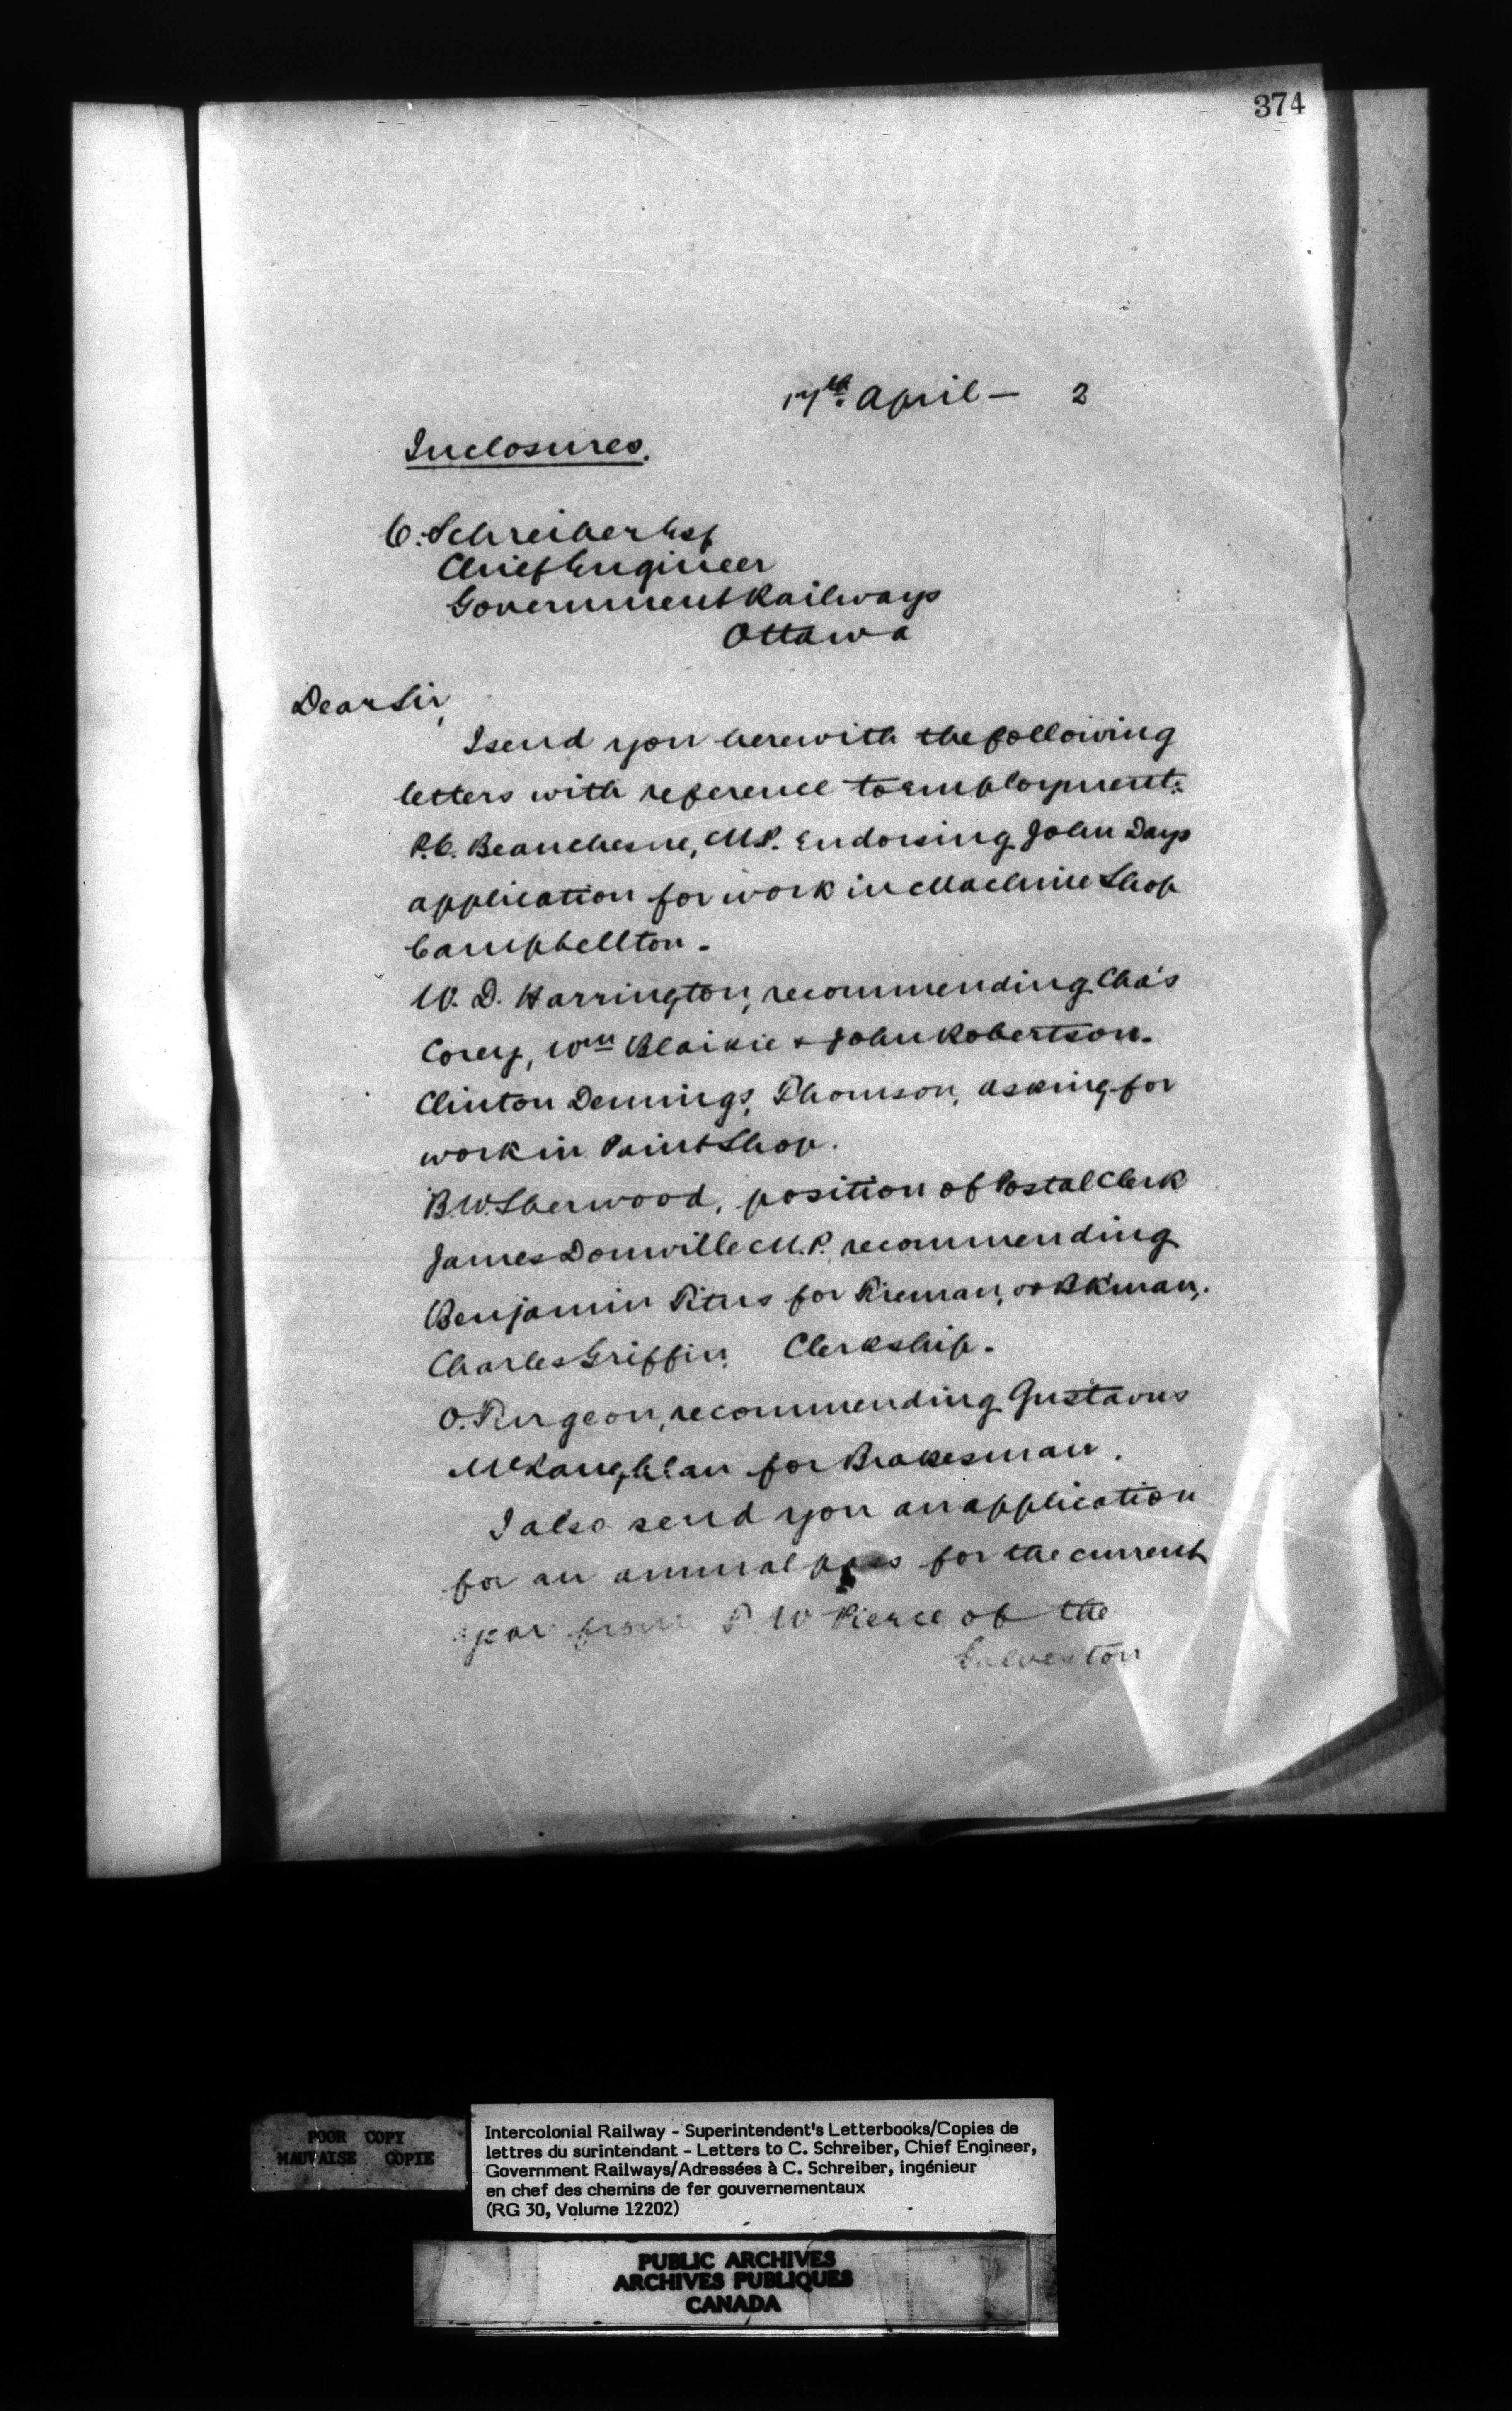 374
17th. April — 2
Inclosures.
C. Schreiber Esq
Chief Engineer
Government Railways
Ottawa
Dear Sir,
I send you herewith the following
letters with reference to employment:
P.C. Beauchesne, M.P. Endorsing John Days
application for work in Machine Shop
Campbellton -
W. D. Harrington, recommending Cha's
Corey, Wm Blaikie + John Robertson.
Clinton Dennings, Thomson, asking for
work in Paint Shop.
B.W. Sherwood, position of Postal Clerk
James Domville M.P. recommending
Benjamin Titus for Fireman, or Bk'man,.
Charles Griffin, Clerkship -
O. Turgeon, recommending Gustavus
McLaughlan for Brakesman.
I also send you an application
for an annual pass for the current
year from T W Pierce of the
Galveston
POOR COPY
MAUVAISE COPIE
Intercolonial Railway - Superintendent's Letterbooks/Copies de
lettres du surintendant - Letters to C. Schreiber, Chief Engineer,
Government Railways/Adressées à C. Schreiber, ingénieur
en chef des chemins de fer gouvernementaux
(RG 30, Volume 12202)
PUBLIC ARCHIVES
ARCHIVES PUBLIQUES
CANADA